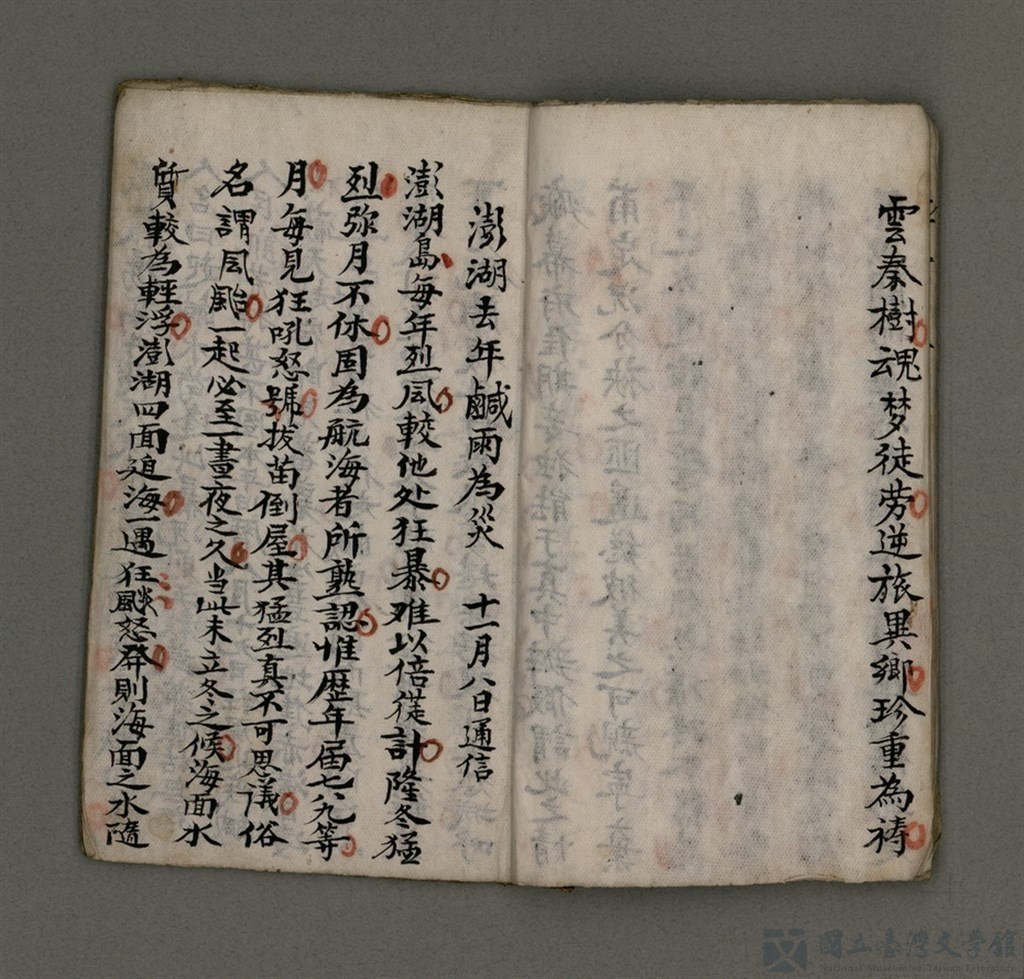 雲秦樹魂梦徒劳逆旅異鄉珍重為禱
澎湖去年鹹雨為災 十一月八日通信
澎湖島每年烈風較他处狂暴难以倍蓰計隆冬猛
烈弥月不休固為航海者所熟認惟歷年届七八九等
月每見狂吼怒號拔苗倒屋其猛烈真不可思議俗
名謂風颱一起必至一晝夜之久当此未立冬之候海面水
質較為輕浮澎湖四面廹海一遇狂飈怒發則海面之水隨
國立臺灣文學館